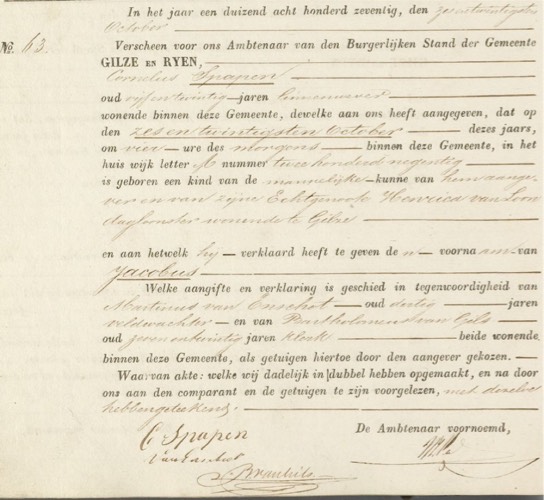 In het jaar een duizend acht honderd zeventig, den zesentwintigste
October
No. 63. Verscheen voor ons Ambtenaar van den Burgerlijken Stand der Gemeente
GILZE EN RYEN,
Cornelus Spapen
oud vijfentwintig jaren linnenwever
wonende binnen deze Gemeente, dewelke aan ons heeft aangegeven, dat op
den zesentwintigsten October dezes jaars,
om vier ure des morgens binnen deze Gemeente, in het
huis wijk letter A nummer twee honderd negentig
is geboren een kind van de mannelijke kunne van hem aange-
ver en van zijne Echtgenoote Henrica van Loon
dagloonster wonende te Gilze
en aan hetwelk hij verklaard heeft te geven de n voornaam van
Jacobus
Welke aangifte en verklaring is geschied in tegenwoordigheid van
Martinus van Enschot oud dertig jaren
veldwachter en van Bartholomeus van Gils
oud zevenentwintig jaren klerk beide wonende
binnen deze Gemeente, als getuigen hiertoe door den aangever gekozen.
Waarvan akte: welke wij dadelijk in dubbel hebben opgemaakt, en na door
ons aan den comparant en de getuigen te zijn voorgelezen, met dezelve
hebben geteekend.
De Ambtenaar voornoemd,
C Spapen